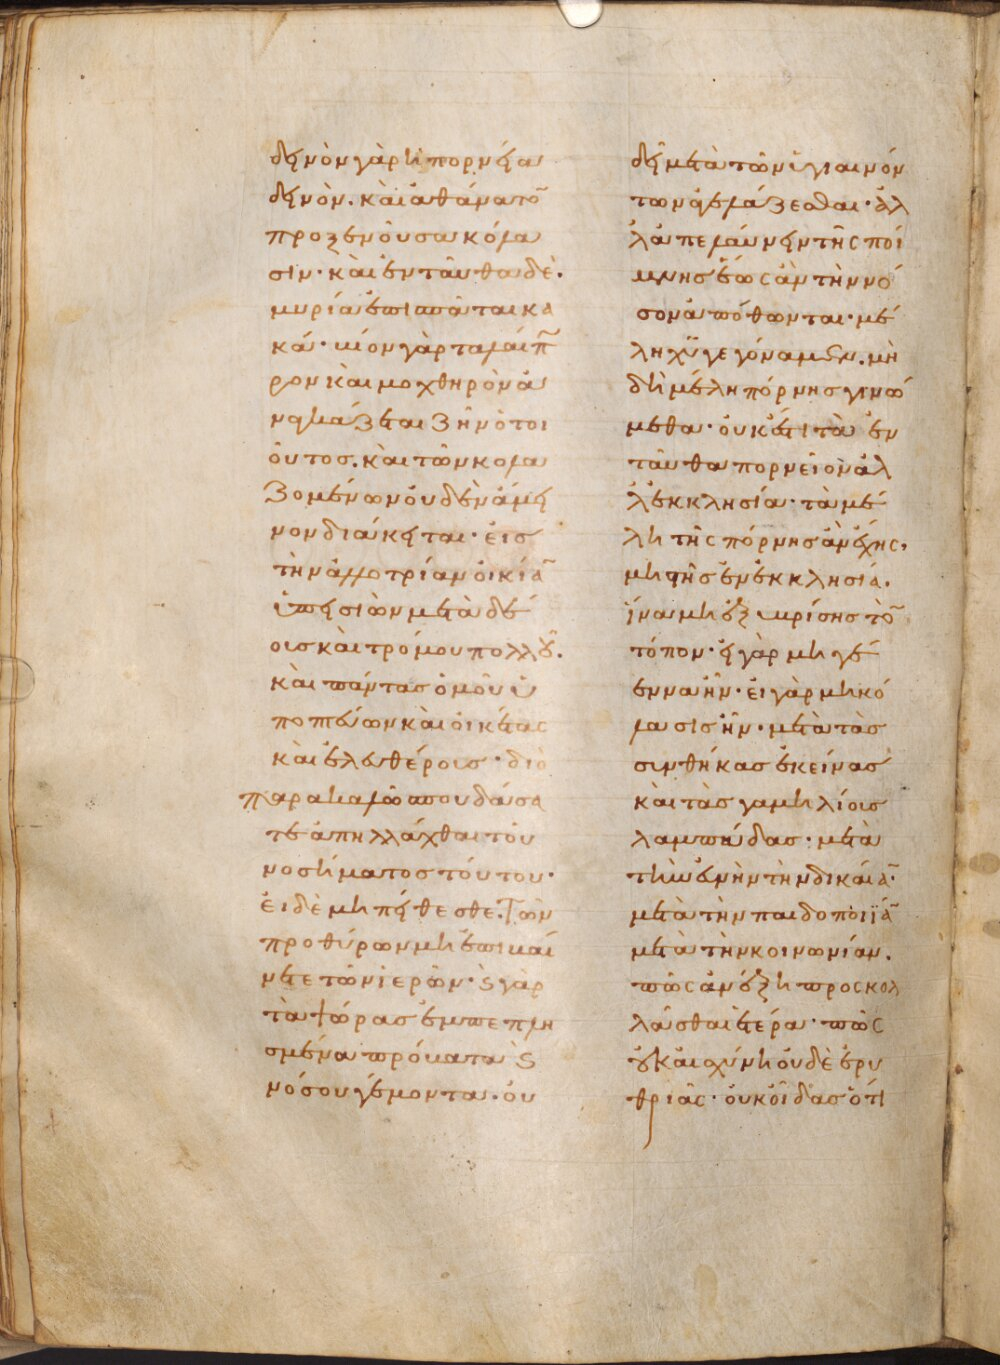 δεινὸν γὰρ ἡ πορνεία
δεινὸν. καὶ ἀθάνατο̅
προξενοῦσα κόλα
σιν· καὶ ἐνταῦθα δὲ.
μυρία ἐπισπᾶται κα
κά· βίον γὰρ ταλαίπ
ρον καὶ μοχθηρὸν ἀ
ναγκάζεται ζῆν ὁ τοι
οῦτος. καὶ τῶν κολα
ζομένων οὐδὲν ἄμει
νον διάκειται· εἰς
τὴν ἀλλοτρίαν οἰκία̅
ἐπεισιὼν μετὰ δέ
ους καὶ τρόμου πολλοῦ.
καὶ πάντας ὁμοῦ ὑ
ποπτεύων καὶ οἰκέτας
καὶ ἐλευθέρους· διὸ
παρακαλῶ σπουδάσα
τε ἀπηλλάχθαι τοῦ
νοσήματος τούτου·
εἰ δὲ μὴ πείθεσθε. τῶν
προθύρων μὴ ἐπιβαί
νετε τῶν ἱερῶν· οὐ γὰρ
τὰ ψώρας ἐμπεπλη
σμένα πρόβατα καὶ
νόσου γέμοντα. οὐ
δεῖ μετὰ τῶν ὑγιαινόν
των αὐλάζεσθαι· ἀλ
λὰ πελαύνειν τῆς ποί
μνης ἕως ἂν τὴν νό
σον ἀπόθωνται· μέ
λη χυ γεγόναμεν. μὴ
δὴ μέλη πόρνης γινώ
μεθα· οὐκ ἔστι τὰ ἐν
ταῦθα πορνεῖον ἀλ
λ' ἐκκλησία· τὰ μέ
λη τῆς πόρνης ἂν ἔχης.
μὴ στῆς ἐν ἐκκλησία.
ἵνα μὴ ἐξυβρίσης τὸ̅
τόπον· εἰ γὰρ μὴ γέ
εννα ἦν· εἰ γὰρ μὴ κό
λασις ἦν· μετὰ τὰς
συνθήκας ἐκείνας
καὶ τὰς γαμηλίους
λαμπάδας· μετὰ
τὴν εὐνὴν τὴν δικαία̅·
μετὰ τὴν παιδοποιΐα̅
μετὰ τὴν κοινωνίαν.
πῶς ἀνέξη προσκολ
λᾶσθαι ἑτέρα· πῶς
οὐκ αἰσχύνη οὐδὲ ἐρυ
θριᾶς· οὐκ οἶδας ὅτι